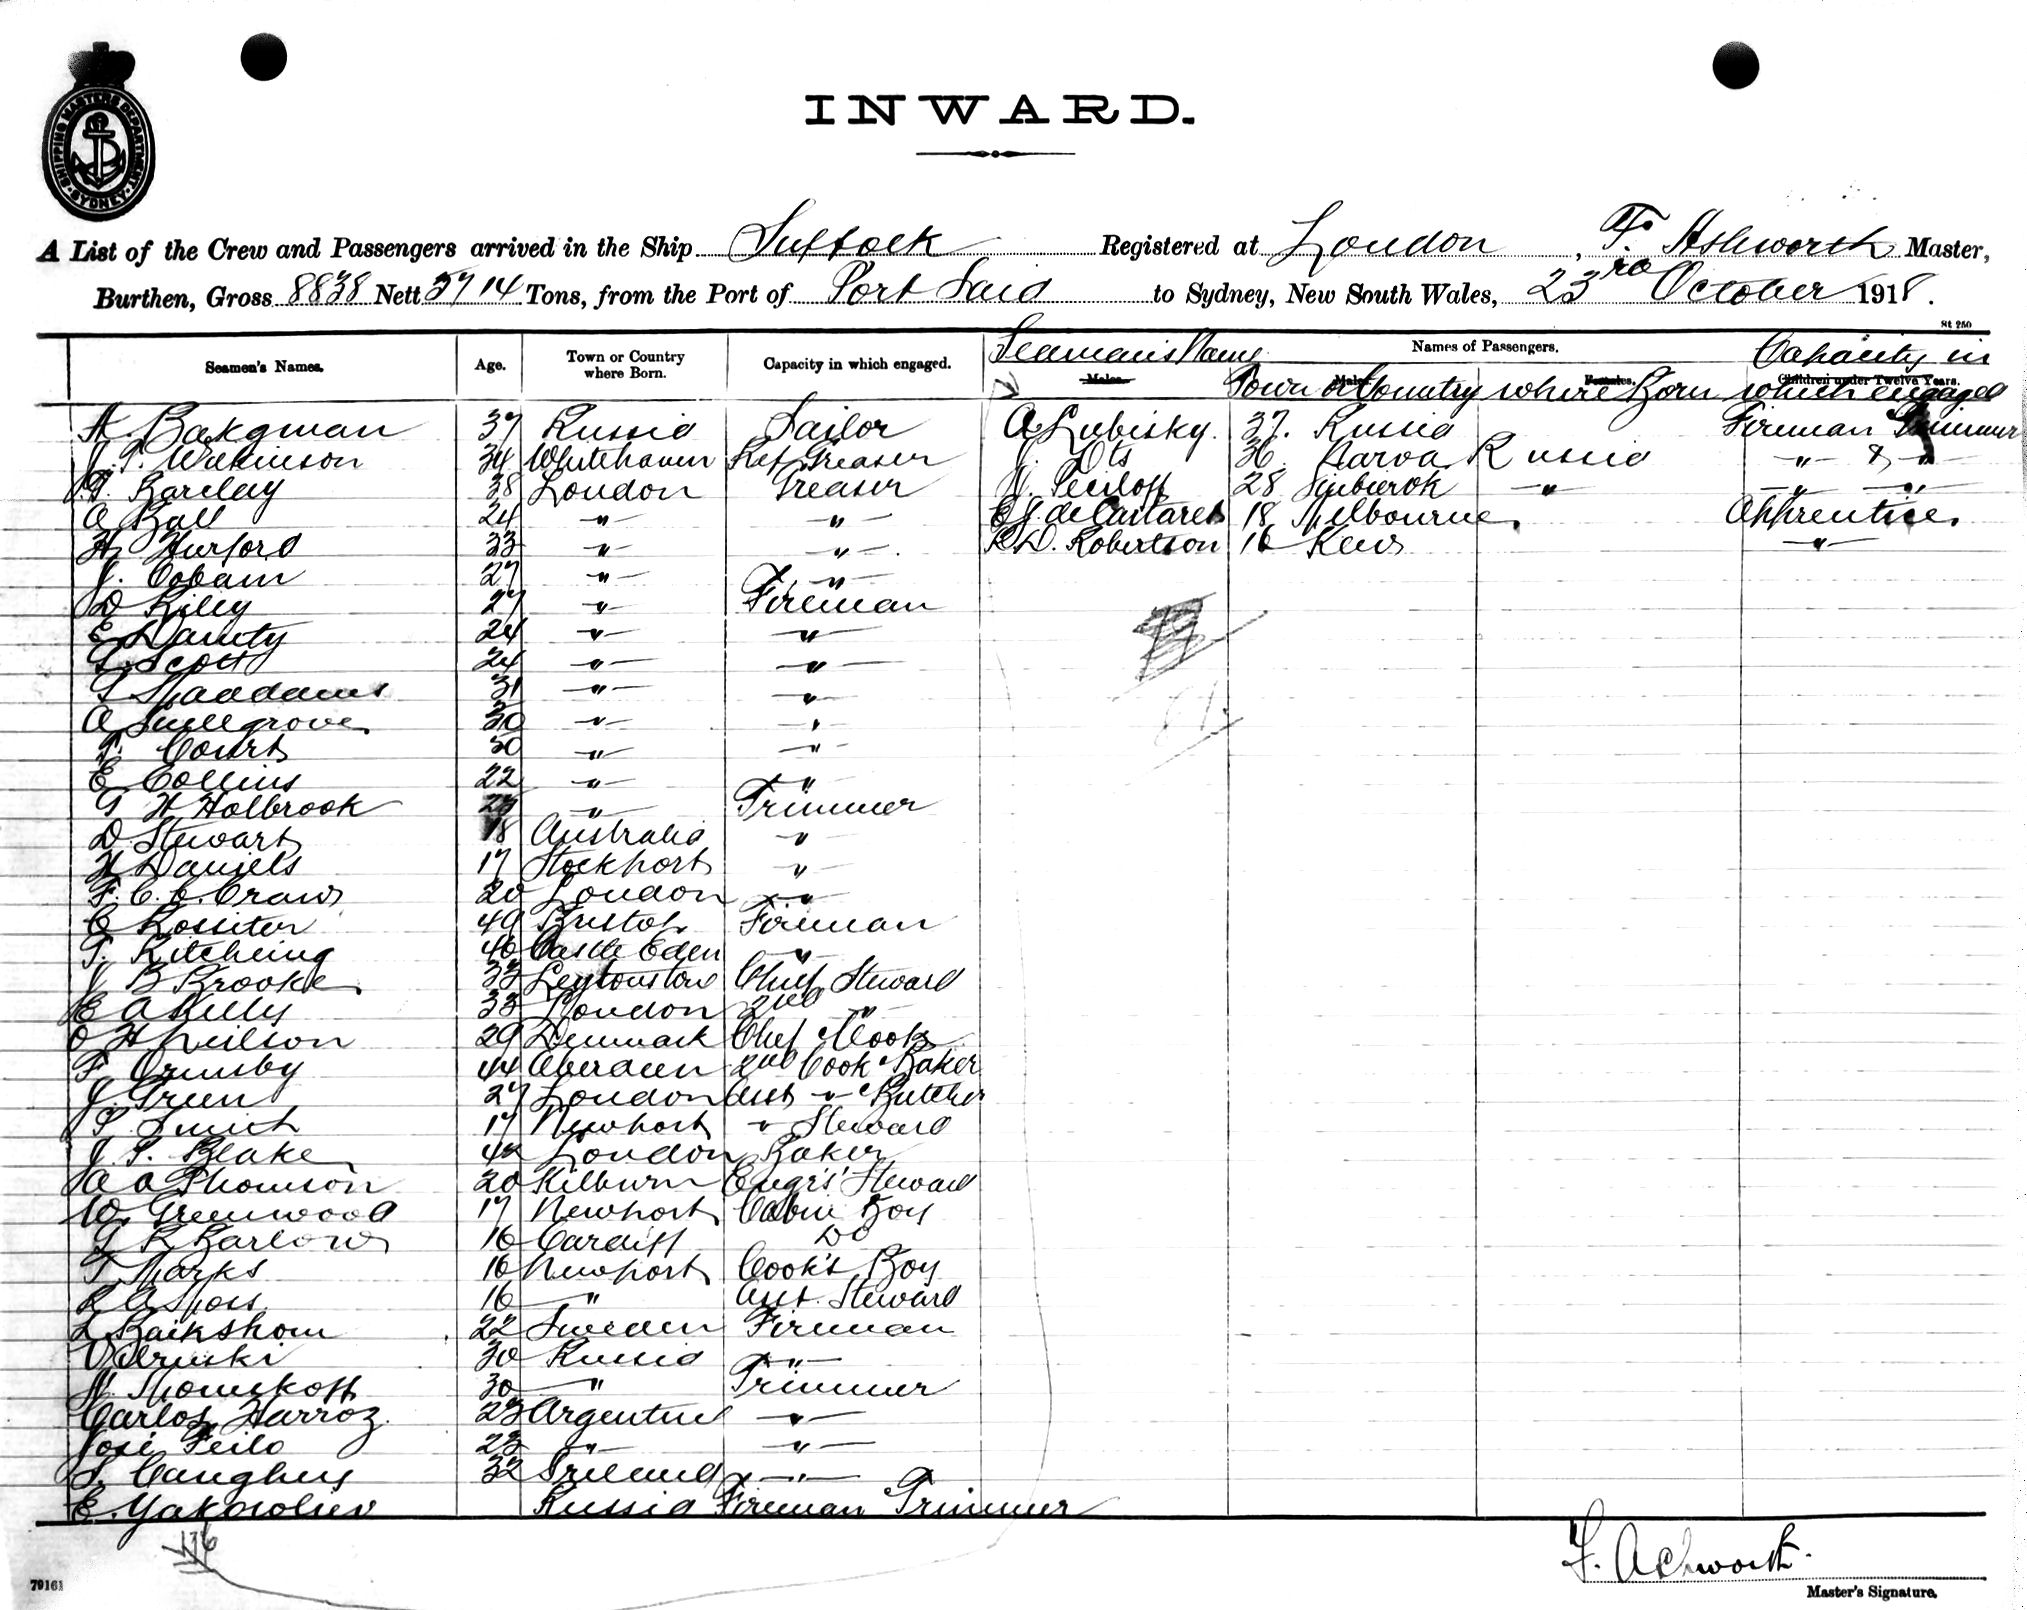 SHIPPING MASTERS DEPARTMENT
SYDNEY
INWARD.
A List of the Crew and Passengers arrived in the Ship Suffolk Registered at London, F. Ashworth Master,
Burthen, Gross 8838 Nett 5714 Tons, from the Port of Port Said to Sydney, New South Wales, 23rd October 1918.
St 250
Seamen's Names. Age. Town or Country where Born. Capacity in which engaged. Seaman's Name Names of Passengers. Capacity in
Males. Males. Females. Children under Twelve Years.
Town or Country where Born which engaged
A. Bakgman 37 Russia Sailor A Lubisky. 37. Russia Fireman Trimmer
J. T. Wilkinson 34 Whitehaven Ref Greaser J. Ots 36. Narva Russia " & "
T. Barclay 38 London Greaser 28 " " "
A Ball 24 " " de Cartaret 18 Melbourne. Apprentice.
H Hurford 33 " " R D. Robertson 16 Kew "
J. Cobain 27 " "
D Riley 27 " Fireman
E Dainty 24 " "
Scott 24 " "
T Maddams 31 " "
A Snellgrove 30 " "
T. Courts 30 " "
E Collins 22 " "
T H Holbrook " Trimmer
D Stewart 18 Australia "
H Daniels 17 Stockport "
F. C. C. Craw 20 London "
C Rossiter 49 Bristol Fireman
T. Kitcheing 40 Castle Eden "
J B Brooke 33 Leytonstow Chief Steward
E A Kelly 33 London 2nd "
O H Neilson 29 Denmark Chef Cook
F Ormsby 44 Aberdeen 2nd Cook & Baker
J. Green 27 London Asst " & Butcher
T Smith 17 Newport " Steward
J. T. Blake 42 London Baker
A A Thomson 20 Kilburn Engrs' Steward
W. Greenwood 17 Newport Cabin Boy
G R Barlow 16 Cardiff Do
T Marks 16 Newport Cook's Boy
R A Moss 16 " Asst. Steward
L Baikshom 22 Sweden Fireman
30 Russia "
30 " Trimmer
Carlos Harroz. 23 Argentine "
José Feilo 23 " "
Caughey 32 Ireland "
E. Yakovliev Russia Fireman Trimmer
F. Ashworth.
Master's Signature.
79161